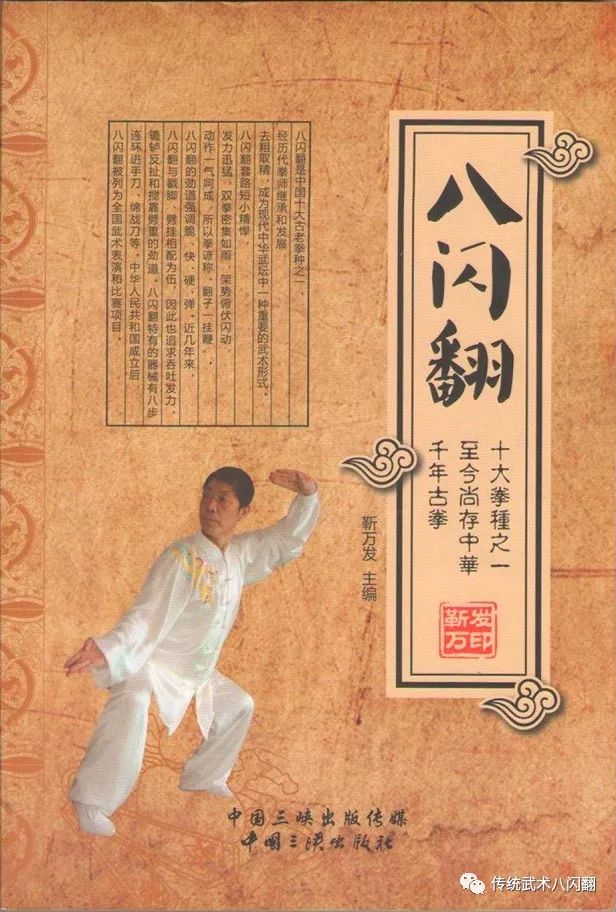 八闪翻
十大拳種之一
至今尚存中華
千年古拳
靳万
发印
靳万发 主编
八闪翻是中国十大古老拳种之一，
经历代拳师继承和发展，
去粗取精，成为现代中华武坛中一种重要的武术形式。
八闪翻套路短小精悍，
发力迅猛，双拳密集如雨，架势俯伏闪动，
动作一气呵成，所以拳谚称“翻子一挂鞭”，
八闪翻的劲道强调脆、快、硬、弹。近几年来，
八闪翻与戳脚、劈挂相配为伍，因此也追求吞吐发力，
辘轳反扯和搅靠劈重的劲道。八闪翻特有的器械有八步
连环进手刀、绵战刀等。中华人民共和国成立后，
八闪翻被列为全国武术表演和比赛项目。
中国三峡出版传媒
中国三峡出版社
传统武术八闪翻